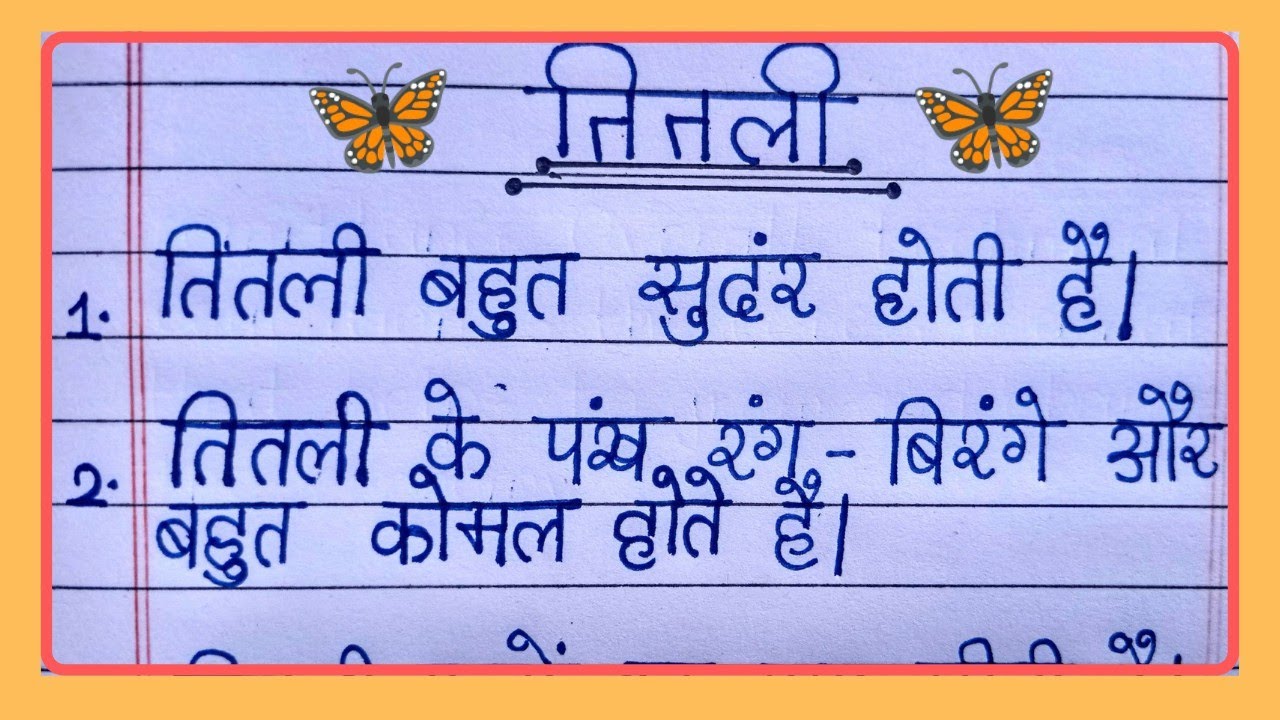 तितली
1. तितली बहुत सुदंर होती है।
2. तितली के पंख रंग-बिरंगे और
बहुत कोमल होते हैं।